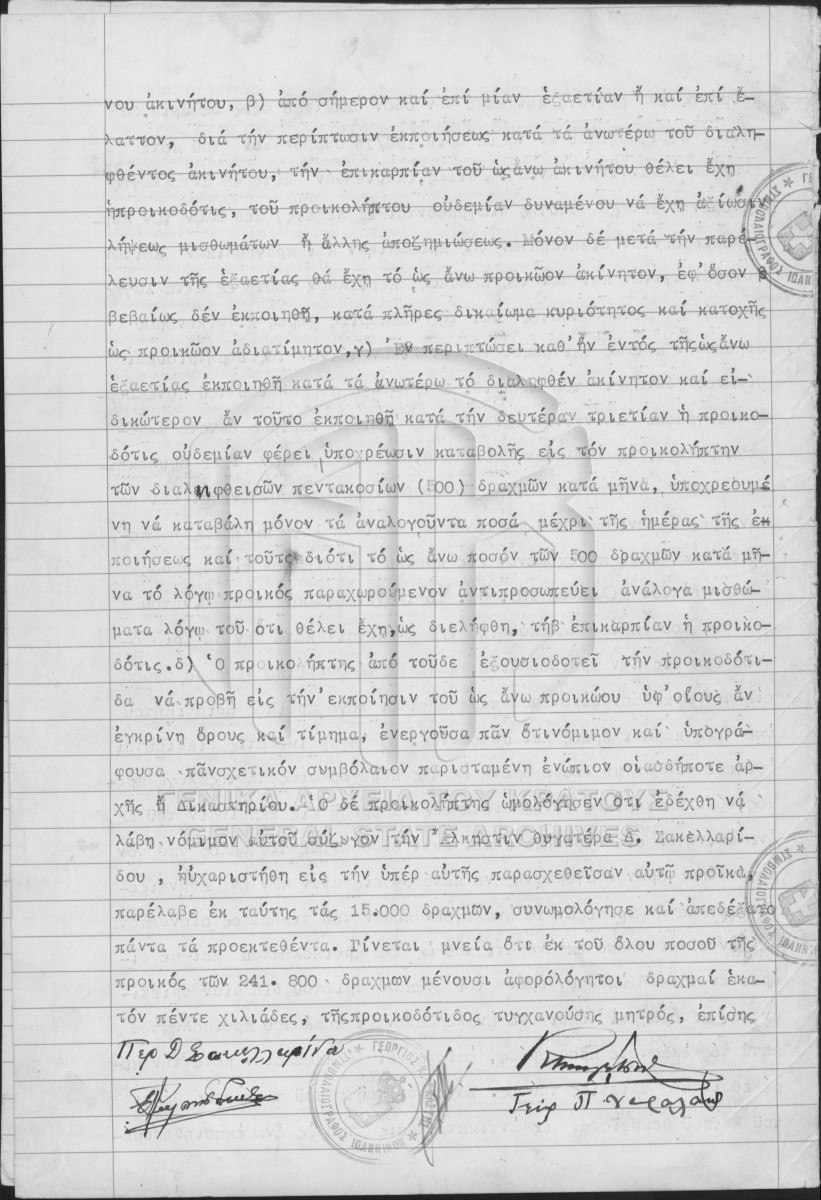 νου ἀκινήτου, β) ἀπό σήμερον καί ἐπί μίαν ἑξαετίαν ἤ καί ἐπί ἔ-
λαττον, διά τήν περίπτωσιν ἐκποιήσεως κατά τά ἀνωτέρω τοῦ διαλη-
φθέντος ἀκινήτου, τήν ἐπικαρπίαν τοῦ ὡςἄνω ἀκινήτου θέλει ἔχη
ἡπροικοδότις, τοῦ προικολήπτου οὐδεμίαν δυναμένου νά ἔχη ἀξίωσιν
λήψεως μισθωμάτων ἤ ἄλλης ἀποζημιώσεως. Μόνον δέ μετά τήν παρέ-
λευσιν τῆς ἑξαετίας θά ἔχη τό ὡς ἄνω προικῶον ἀκίνητον, ἐφ' ὅσον β
βεβαίως δέν ἐκποιηθῆ, κατά πλῆρες δικαίωμα κυριότητος καί κατοχῆς
ὡς προικῶον ἀδιατίμητον, γ) Ἐν περιπτώσει καθ' ἥν ἐντός τῆςὡςἄνω
ἑξαετίας ἐκποιηθῆ κατά τά ἀνωτέρω τό διαληφθέν ἀκίνητον καί εἰ-
δικώτερον ἄν τοῦτο ἐκποιηθῆ κατά τήν δευτέραν τριετίαν ἡ προικο-
δότις οὐδεμίαν φέρει ὑποχρέωσιν καταβολῆς εἰς τόν προικολήπτην
τῶν διαληφθεισῶν πεντακοσίων (500) δραχμῶν κατά μῆνα, ὑποχρεουμέ
νη νά καταβάλη μόνον τά ἀναλογοῦντα ποσά μέχρι τῆς ἡμέρας τῆς ἐκ
ποιήσεως καί τοῦτο διότι τό ὡς ἄνω ποσόν τῶν 500 δραχμῶν κατά μῆ-
να τό λόγῳ προικός παραχωρούμενον ἀντιπροσωπεύει ἀνάλογα μισθώ-
ματα λόγῳ τοῦ ὅτι θέλει ἔχη, ὡς διελήφθη, τήβ ἐπικαρπίαν ἡ προικο-
δότις. δ) Ὁ προικολήπτης ἀπό τοῦδε ἐξουσιοδοτεῖ τήν προικοδότι-
δα νά προβῆ εἰς τήν ἐκποίησιν τοῦ ὡς ἄνω προικώου ὑφ' οἵους ἄν
ἐγκρίνη ὅρους καί τίμημα, ἐνεργοῦσα πᾶν ὅτινόμιμον καί ὑπογρά-
φουσα πᾶνσχετικόν συμβόλαιον παρισταμένη ἐνώπιον οἱασδήποτε ἀρ-
χῆς ἤ Δικαστηρίου.- Ὁ δέ προικολήπτης ὡμολόγησεν ὅτι ἐδέχθη νά
λάβη νόμιμον αὐτοῦ σύζυγον τήν Ἄλκηστιν θυγατέρα Δ. Σακελλαρί-
δου , ηὐχαριστήθη εἰς τήν ὑπέρ αὐτῆς παρασχεθεῖσαν αὐτῷ προῖκα,
παρέλαβε ἐκ ταύτης τάς 15.000 δραχμῶν, συνωμολόγησε καί ἀπεδέξατο
πάντα τά προεκτεθέντα. Γίνεται μνεία ὅτι ἐκ τοῦ ὅλου ποσοῦ τῆς
προικός τῶν 241.800 δραχμων μένουσι ἀφορολόγητοι δραχμαί ἑκα-
τόν πέντε χιλιάδες, τῆςπροικοδότιδος τυγχανούσης μητρός, ἐπίσης
ΓΕΝΙΚΑ ΑΡΧΕΙΑ ΤΟΥ ΚΡΑΤΟΥΣ
GENERAL STATE ARCHIVES
ΣΥΜΒΟΛΑΙΟΓΡΑΦΟΣ ΙΩΑΝΝΙΝΩΝ
ΓΕΩΡΓΙΟΣ Κ.